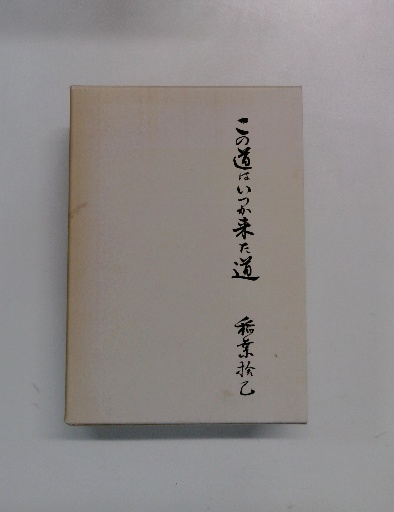 この道はいつか来た道
稲葉拾乙